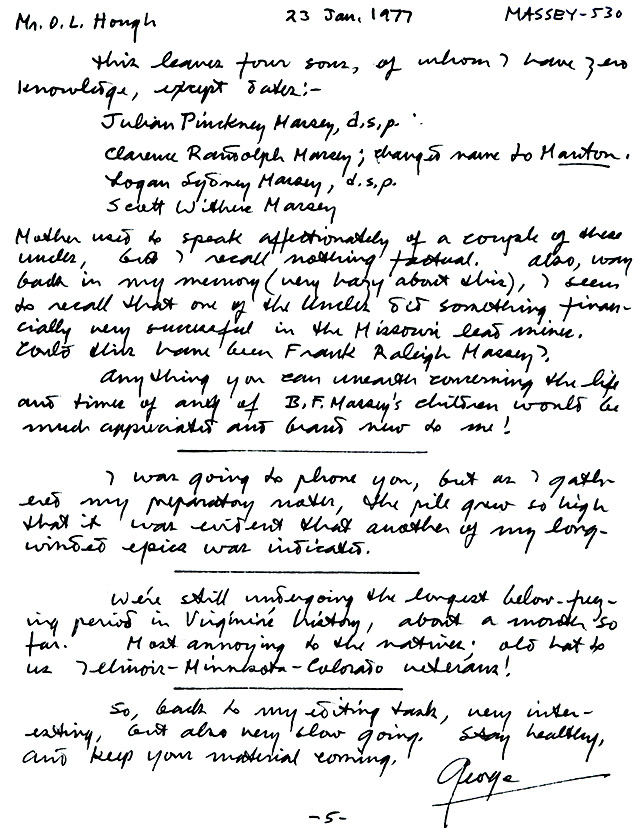 Mr. O. L. Hough 23 Jan. 1977 MASSEY-530
This leaves four sons, of whom I have zero
knowledge, except dates:-
Julian Pinckney Massey, d.s.p.
Clarence Randolph Massey; changed name to Manton.
Logan Sydney Massey, d.s.p.
Scott Withers Massey
Mother used to speak affectionately of a couple of these
uncles, but I recall nothing factual. Also, way
back in my memory (very hazy about this), I seem
to recall that one of the uncles did something finan-
cially very successful in the Missouri lead mines.
Could this have been Frank Raleigh Massey?
Anything you can unearth concerning the life
and times of any of B.F. Massey's children would be
much appreciated and brand new to me!
I was going to phone you, but as I gath-
ered my preparatory notes, the pile grew so high
that it was evident that another of my long-
winded epics was indicated.
We're still undergoing the longest below-freez-
ing period in Virginia history, about a month so
far. Most annoying to the natives; old hat to
us Illinois-Minnesota-Colorado veterans!
So, back to my editing task, very inter-
esting, but also very slow going. Stay healthy,
and keep your material coming.
George
-5-